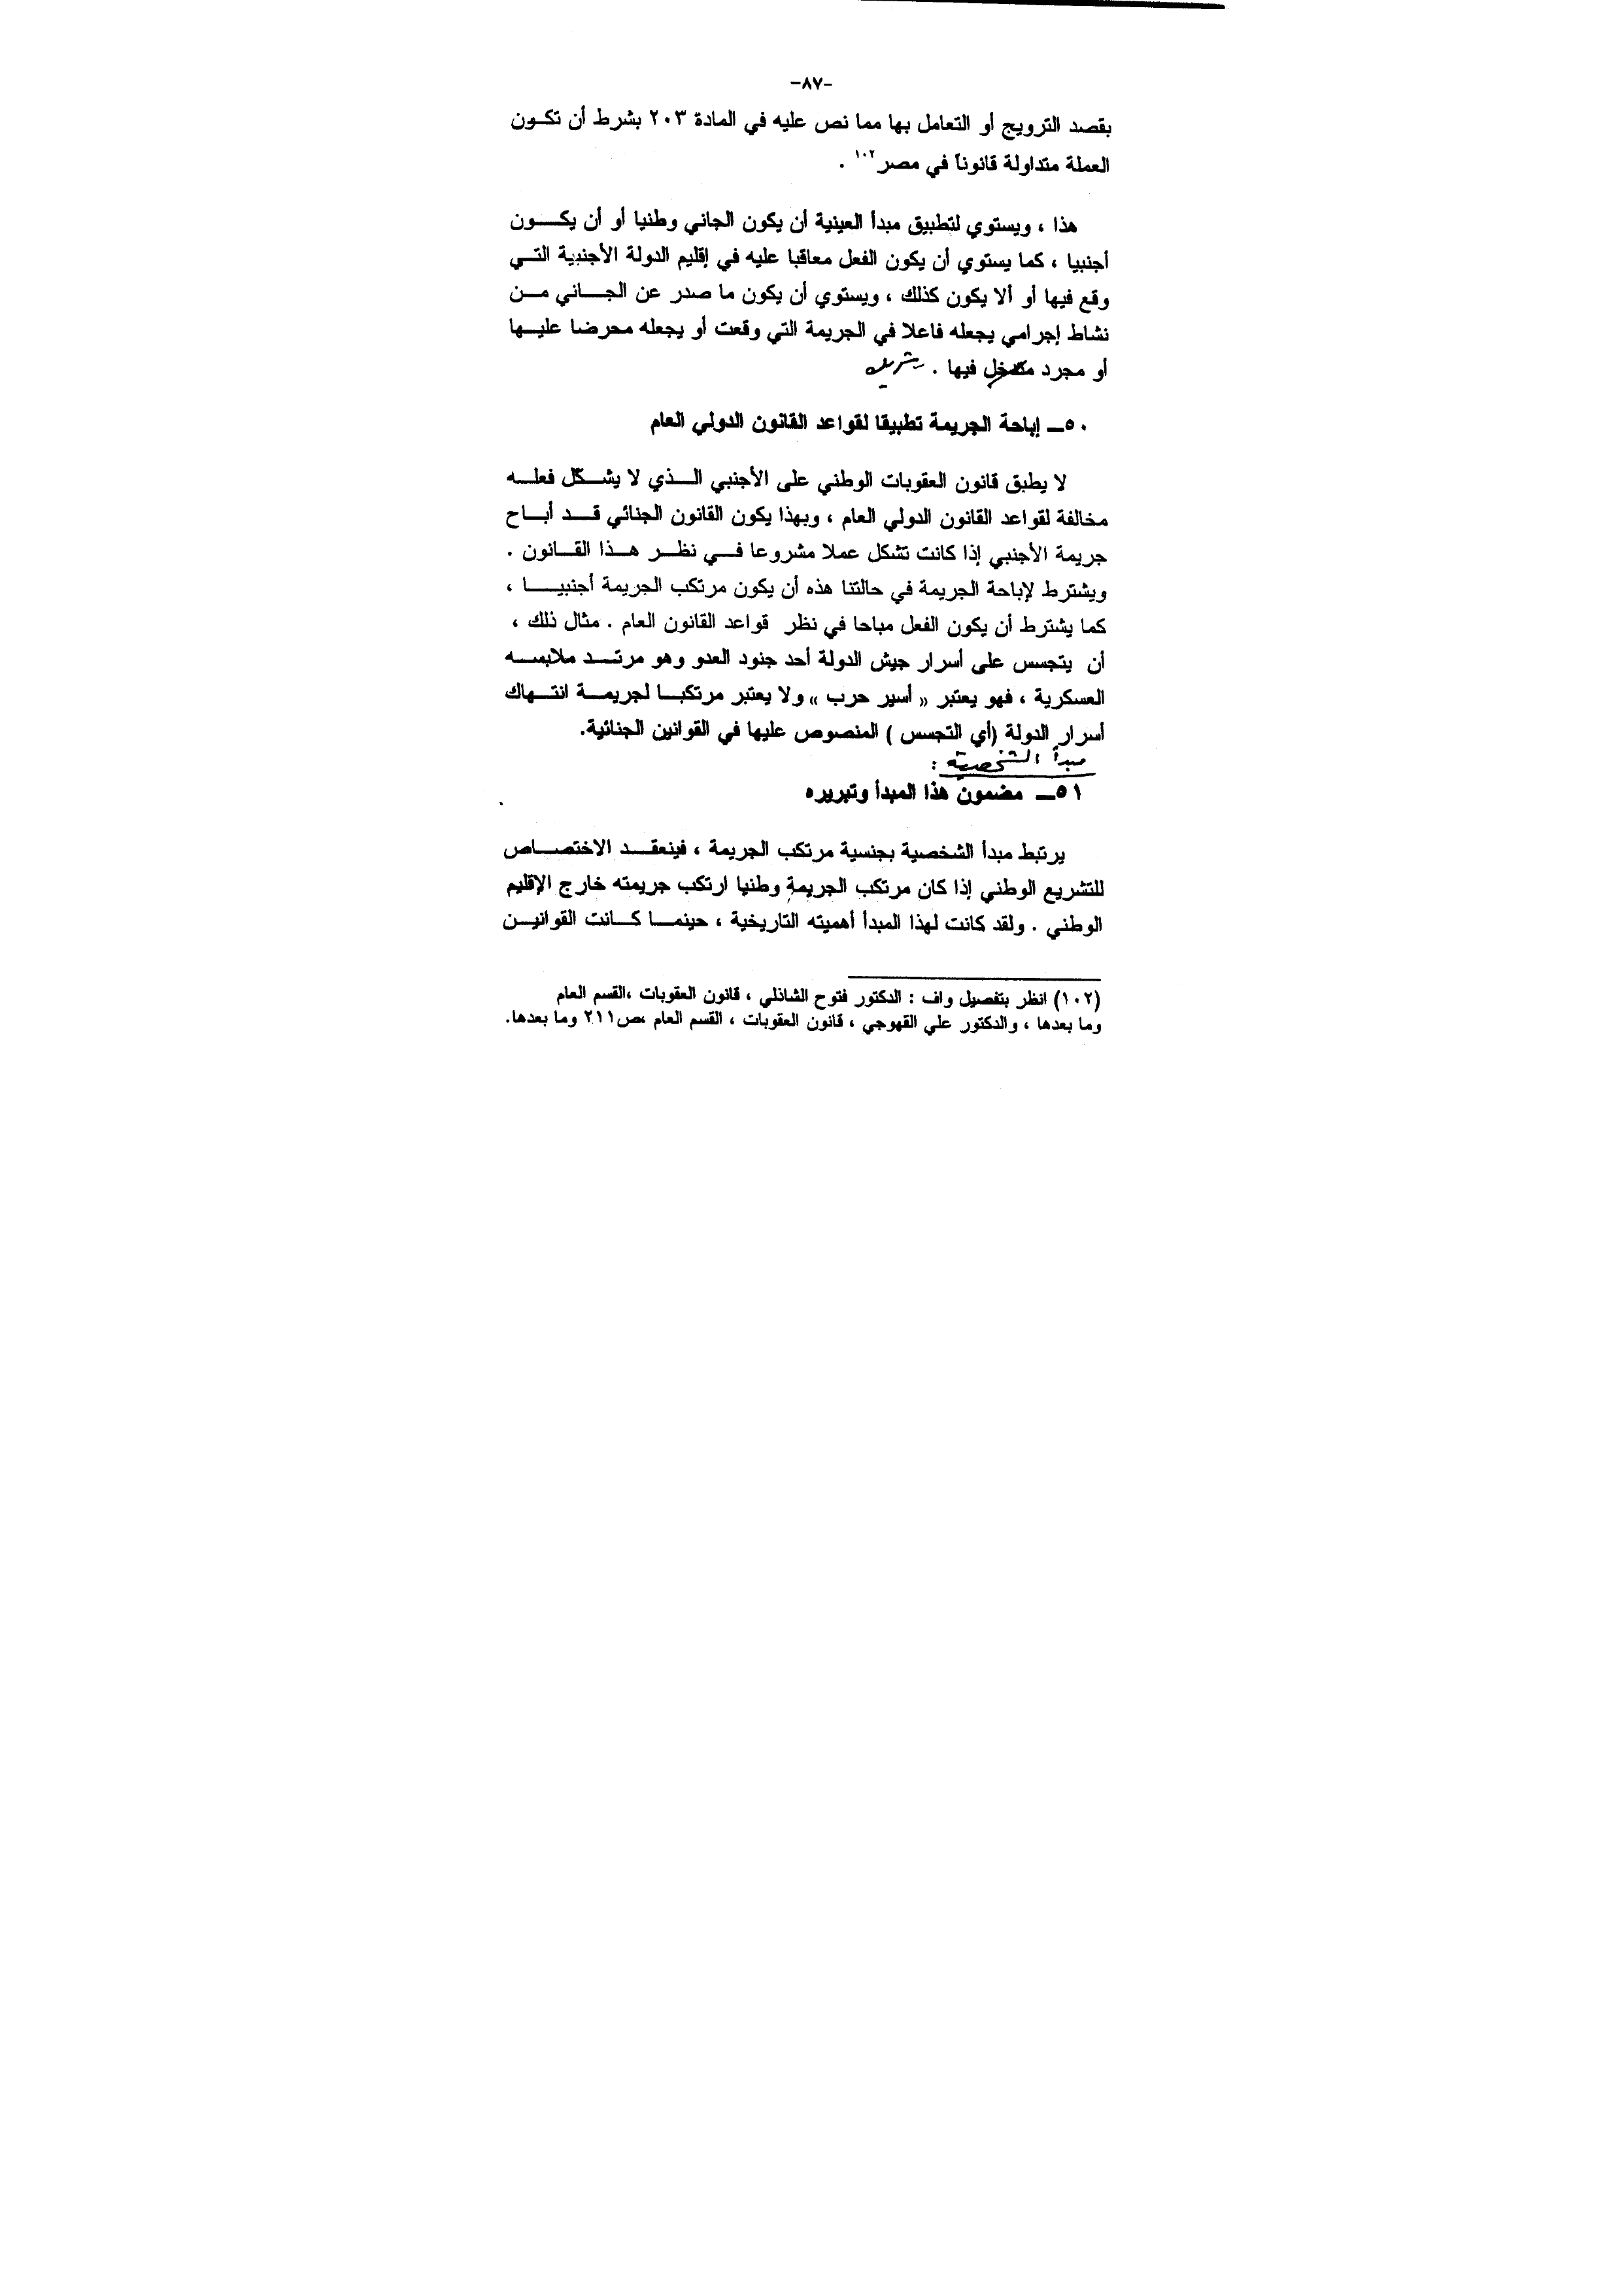 -٨٧-
بقصد الترويج أو التعامل بها مما نص عليه في المادة ٢٠٣ بشرط أن تكـون
العملة متداولة قانوناً في مصر ١٠٢ .
هذا ، ويستوي لتطبيق مبدأ العينية أن يكون الجاني وطنيا أو أن يكـــون
أجنبيا ، كما يستوي أن يكون الفعل معاقبا عليه في إقليم الدولة الأجنبية التـي
وقع فيها أو ألا يكون كذلك ، ويستوي أن يكون ما صدر عن الجـــاني مـــن
نشاط إجرامي يجعله فاعلا في الجريمة التي وقعت أو يجعله محرضا عليـــها
أو مجرد متدخل فيها . شريك
٥٠ــ إباحة الجريمة تطبيقا لقواعد القانون الدولي العام
لا يطبق قانون العقوبات الوطني على الأجنبي الـــذي لا يشــكّل فعلـــه
مخالفة لقواعد القانون الدولي العام ، وبهذا يكون القانون الجنائي قـــد أبـــاح
جريمة الأجنبي إذا كانت تشكل عملا مشروعا فـــي نظـــر هـــذا القـــانون .
ويشترط لإباحة الجريمة في حالتنا هذه أن يكون مرتكب الجريمة أجنبيـــــا ،
كما يشترط أن يكون الفعل مباحا في نظر قواعد القانون العام . مثال ذلك ،
أن يتجسس على أسرار جيش الدولة أحد جنود العدو وهو مرتـــد ملابســه
العسكرية ، فهو يعتبر « أسير حرب » ولا يعتبر مرتكبـــا لجريمـــة انتـــهاك
أسرار الدولة (أي التجسس ) المنصوص عليها في القوانين الجنائية.
مبدأ الشخصية :
٥١ــ مضمون هذا المبدأ وتبريره
يرتبط مبدأ الشخصية بجنسية مرتكب الجريمة ، فينعقـــد الاختصـــاص
للتشريع الوطني إذا كان مرتكب الجريمة وطنيا ارتكب جريمته خارج الإقليم
الوطني . ولقد كانت لهذا المبدأ أهميته التاريخية ، حينمـــا كـــانت القوانيـــن
(١٠٢) انظر بتفصيل واف : الدكتور فتوح الشاذلي ، قانون العقوبات ،القسم العام
وما بعدها ، والدكتور علي القهوجي ، قانون العقوبات ، القسم العام ،ص٢١١ وما بعدها.